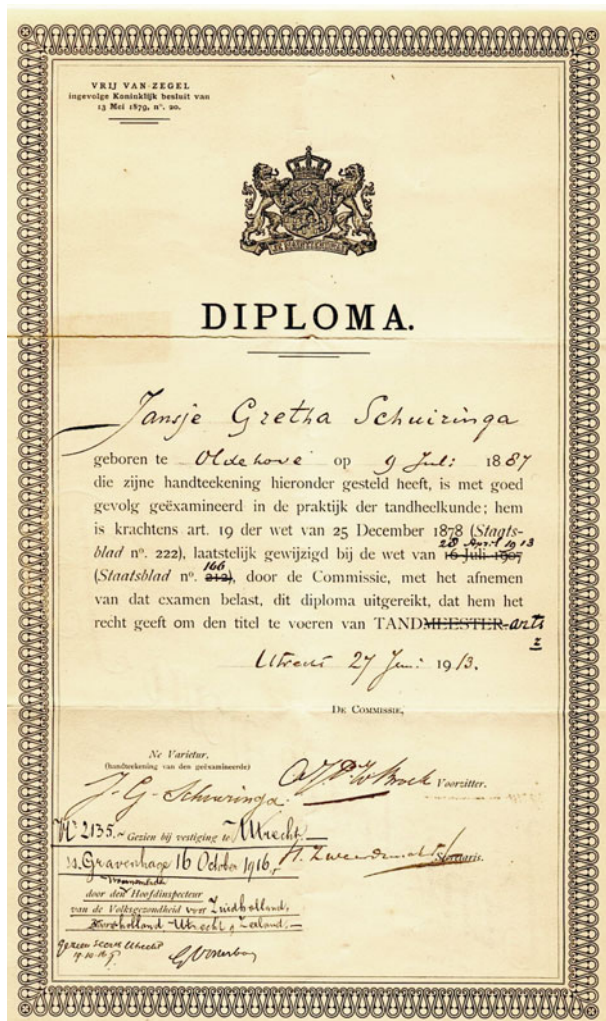 VRIJ VAN ZEGEL
ingevolge Koninklijk besluit van
13 Mei 1879, nº. 20.
JE MAINTIENDRAI
DIPLOMA.
Jansje Gretha Schuiringa
geboren te Oldehove op 9 Juli 1887
die zijne handteekening hieronder gesteld heeft, is met goed
gevolg geëxamineerd in de praktijk der tandheelkunde; hem
is krachtens art. 19 der wet van 25 December 1878 (Staats-
blad nº. 222), laatstelijk gewijzigd bij de wet van 16 Juli 1907
28 April 1913
(Staatsblad nº. 212), door de Commissie, met het afnemen
166
van dat examen belast, dit diploma uitgereikt, dat hem het
recht geeft om den titel te voeren van TANDMEESTER. arts
Utrecht 27 Juni 1913.
DE COMMISSIE,
Ne Varietur,
(handteekening van den geëxamineerde)
Voorzitter.
J. G. Schuiringa.
Nº 2135. Gezien bij vestiging te Utrecht.
Secretaris.
's Gravenhage 16 October 1916,
door den Hoofdinspecteur
van de Volksgezondheid voor Zuidholland,
Noordholland Utrecht & Zeeland.